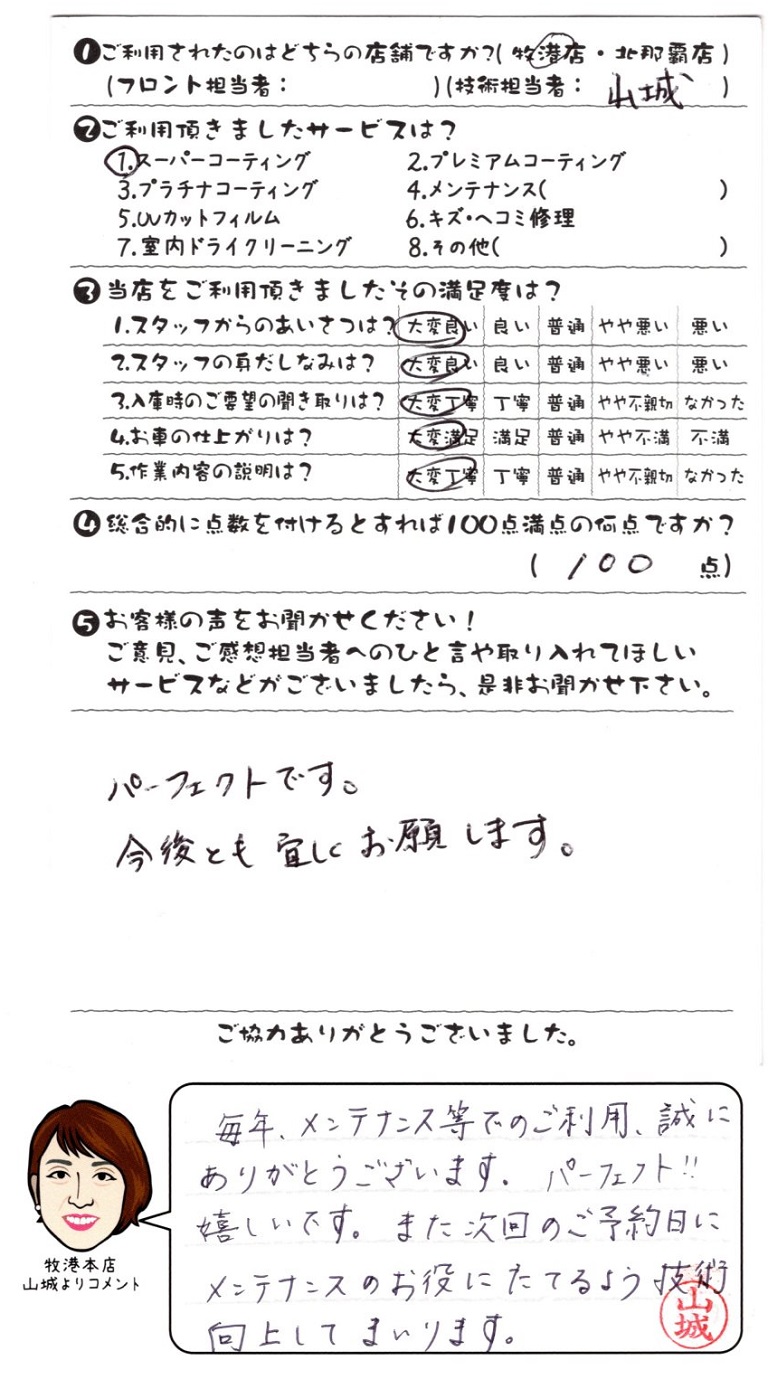 ❶ご利用されたのはどちらの店舗ですか?(牧港店・北那覇店)
(フロント担当者:　)(技術担当者: 山城 )
❷ご利用頂きましたサービスは?
1.スーパーコーティング　2.プレミアムコーティング
3.プラチナコーティング　4.メンテナンス(　)
5.UVカットフィルム　6.キズ・ヘコミ修理
7.室内ドライクリーニング　8.その他(　)
❸当店をご利用頂きましたその満足度は?
1.スタッフからのあいさつは?　大変良い　良い　普通　やや悪い　悪い
2.スタッフの身だしなみは?　大変良い　良い　普通　やや悪い　悪い
3.入庫時のご要望の聞き取りは?　大変丁寧　丁寧　普通　やや不親切　なかった
4.お車の仕上がりは?　大変満足　満足　普通　やや不満　不満
5.作業内容の説明は?　大変丁寧　丁寧　普通　やや不親切　なかった
❹総合的に点数を付けるとすれば100点満点の何点ですか?
( 100 点)
❺お客様の声をお聞かせください!
ご意見、ご感想担当者へのひと言や取り入れてほしい
サービスなどがございましたら、是非お聞かせ下さい。
パーフェクトです。
今後とも宜しくお願いします。
ご協力ありがとうございました。
毎年、メンテナンス等でのご利用、誠に
ありがとうございます。パーフェクト!!
嬉しいです。また次回のご予約日に
メンテナンスのお役にたてるよう技術
向上してまいります。
山城
牧港本店
山城よりコメント